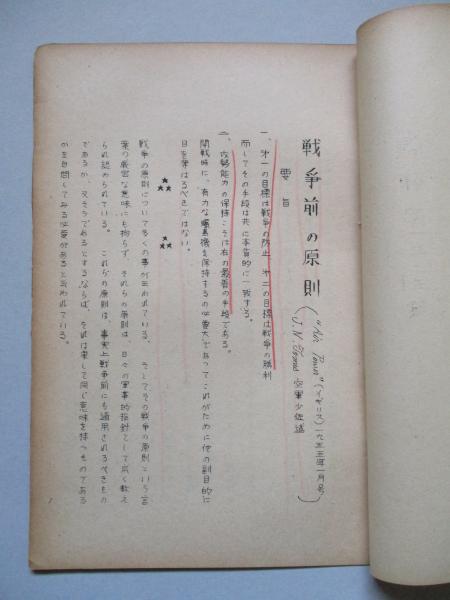 戦争前の原則
("Air Power"(イギリス)一九五五年一月号)
J.N. 空軍少佐述
要旨
一、第一の目標は戦争の防止、第二の目標は戦争の勝利
而してその手段は共に本質的に一致する。
二、攻勢能力の保持こそは右の最善の手段である。
開戦時に、有力な爆撃機を保持するの必要大であってこれがために他の副目的に
目を奪はるべきではない。
戦争の原則について多くの事が云われている。そしてその戦争の原則という言
葉の厳密な意味にも拘らず、それらの原則は、日々の軍事的指針として広く教え
られ認められている。これらの原則は、事実上戦争前にも適用されるべきもの
であるか、又そうであるとするならば、それは果して同じ意味を持つものである
かを自問してみる必要があると云われている。